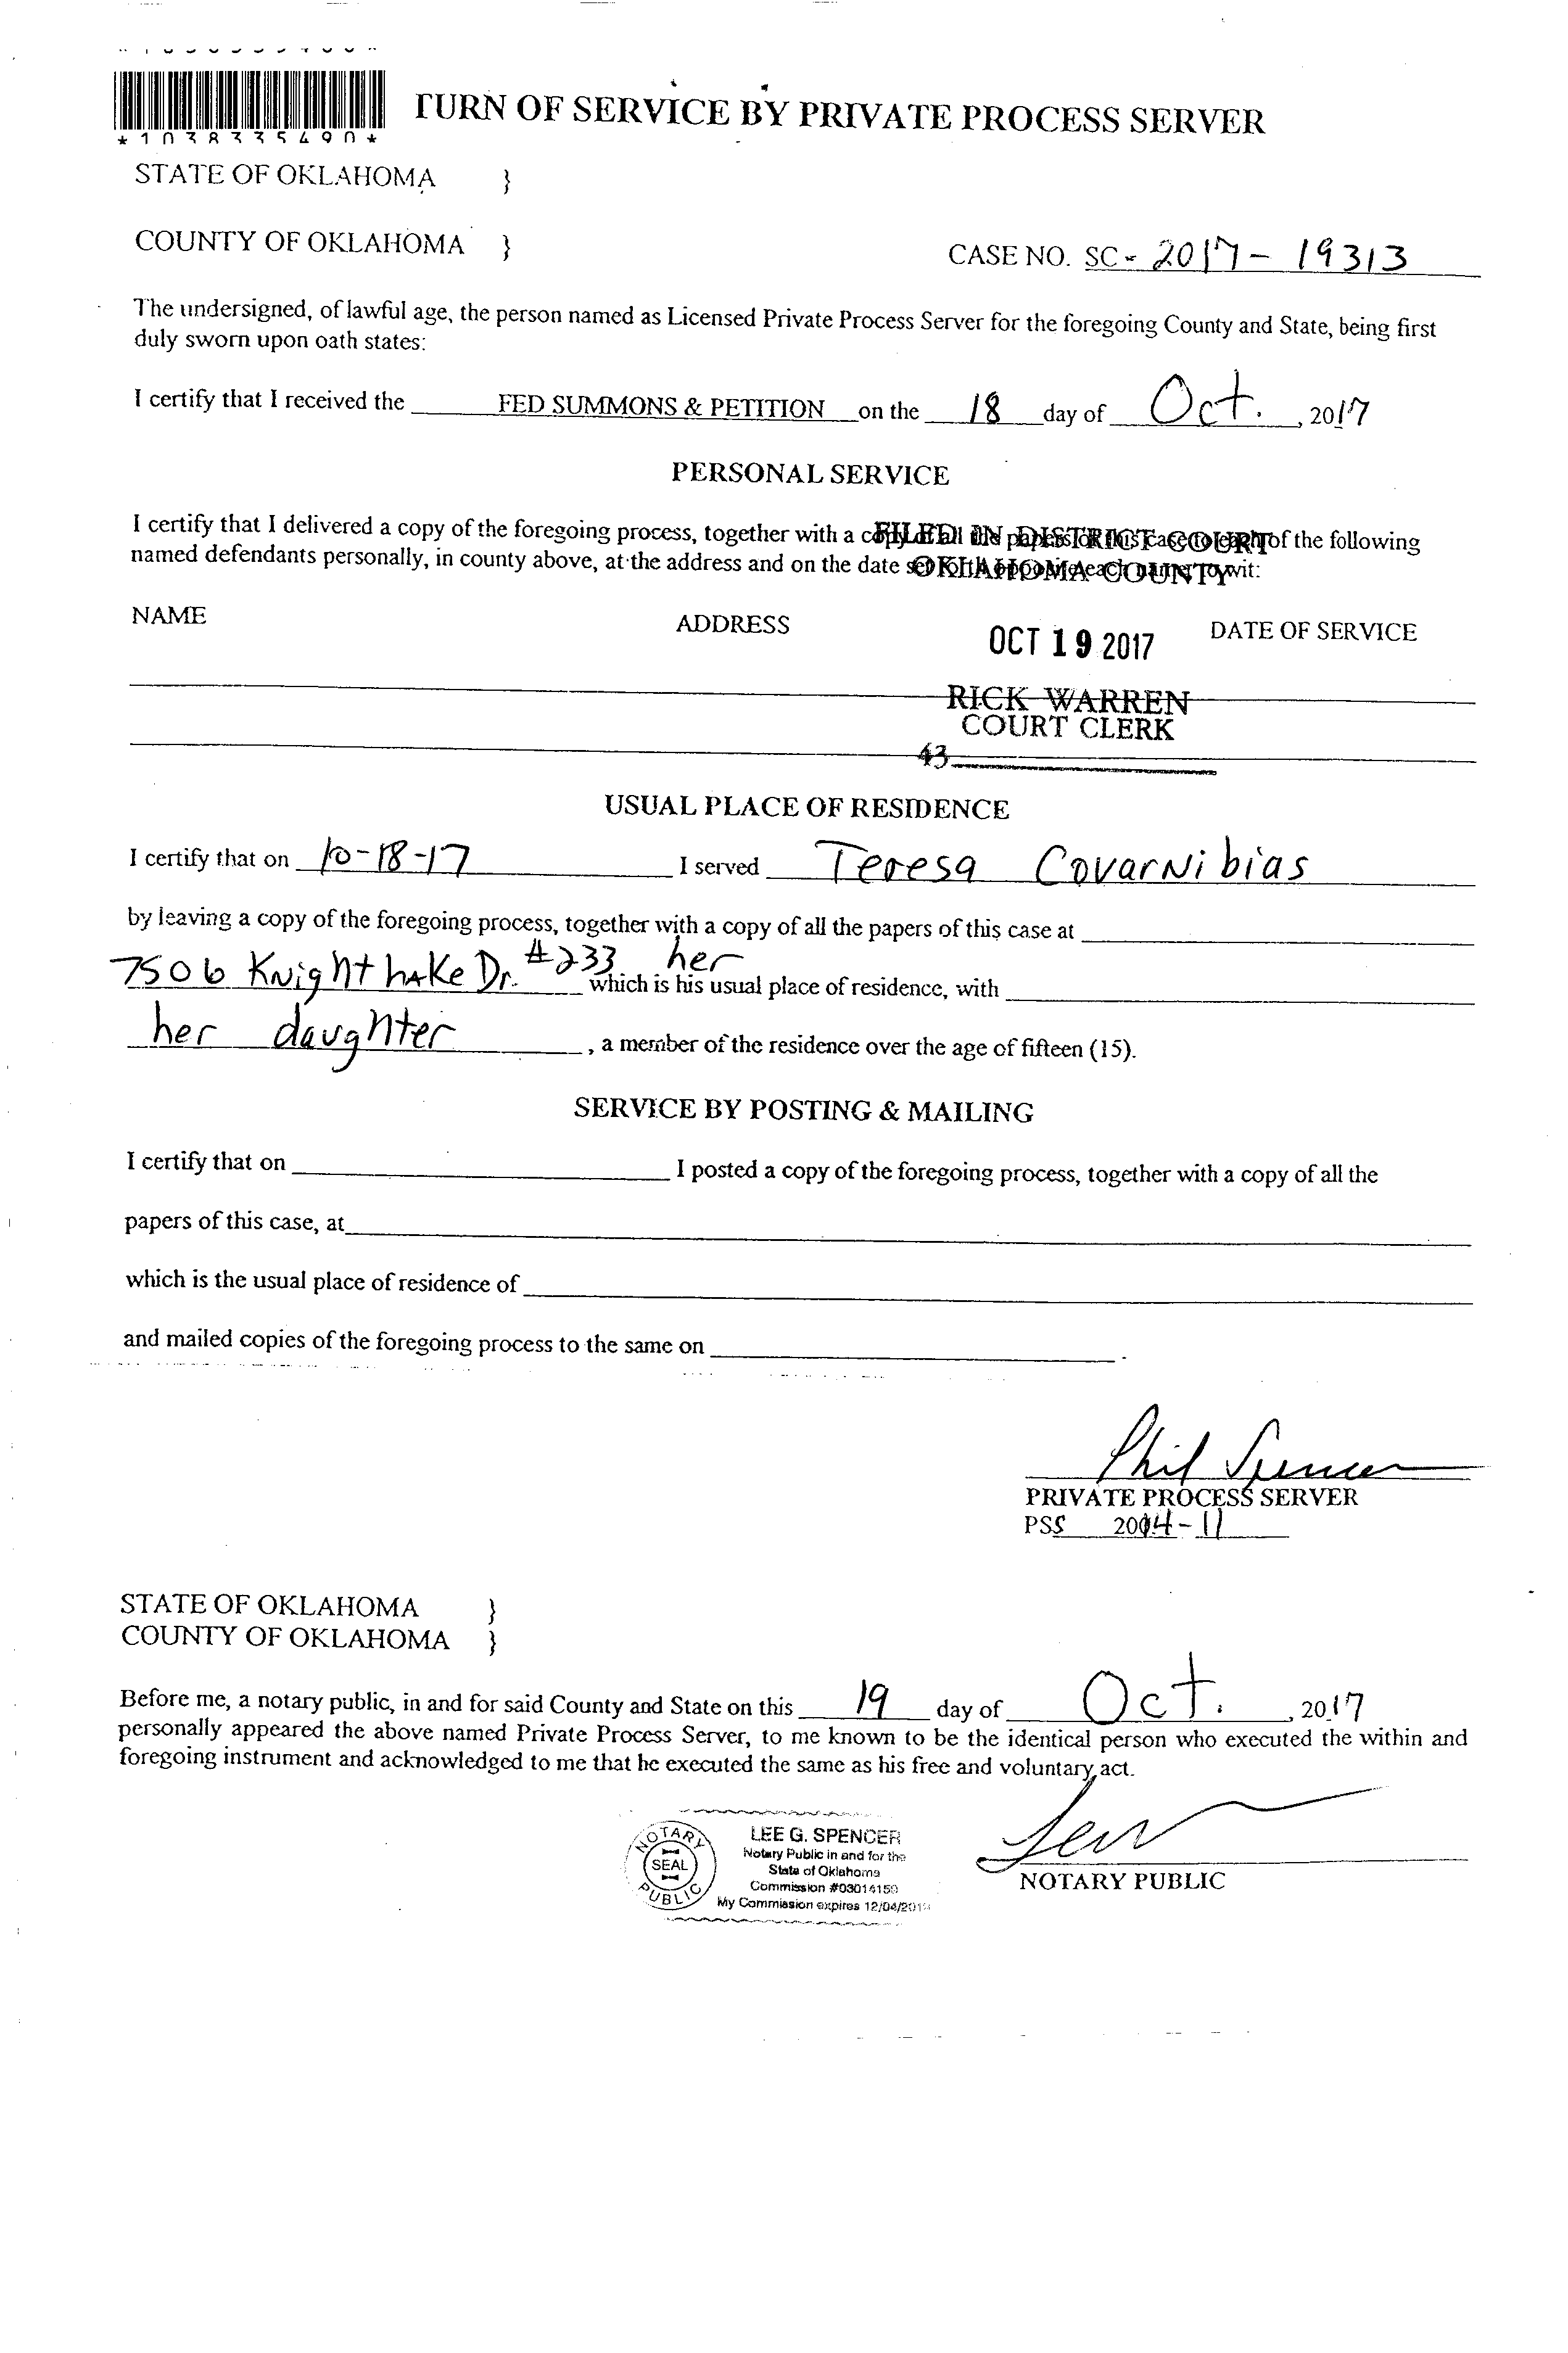 *1038335490*
TURN OF SERVICE BY PRIVATE PROCESS SERVER
STATE OF OKLAHOMA }
COUNTY OF OKLAHOMA }
CASE NO. SC - 2017 - 19313
The undersigned, of lawful age, the person named as Licensed Private Process Server for the foregoing County and State, being first
duly sworn upon oath states:
I certify that I received the FED SUMMONS & PETITION on the 18 day of Oct. , 2017
PERSONAL SERVICE
I certify that I delivered a copy of the foregoing process, together with a copy of all the papers of this case to each of the following
FILED IN DISTRICT COURT
named defendants personally, in county above, at the address and on the date set forth opposite each name, to wit:
OKLAHOMA COUNTY
NAME ADDRESS DATE OF SERVICE
OCT 19 2017
RICK WARREN
COURT CLERK
43
USUAL PLACE OF RESIDENCE
I certify that on 10-18-17 I served Teresa Covarnibias
by leaving a copy of the foregoing process, together with a copy of all the papers of this case at
7506 Knight Lake Dr. #233 her which is his usual place of residence, with
her daughter , a member of the residence over the age of fifteen (15).
SERVICE BY POSTING & MAILING
I certify that on I posted a copy of the foregoing process, together with a copy of all the
papers of this case, at
which is the usual place of residence of
and mailed copies of the foregoing process to the same on .
Phil Spencer
PRIVATE PROCESS SERVER
PSS 2004-11
STATE OF OKLAHOMA }
COUNTY OF OKLAHOMA }
Before me, a notary public, in and for said County and State on this 19 day of Oct. , 2017
personally appeared the above named Private Process Server, to me known to be the identical person who executed the within and
foregoing instrument and acknowledged to me that he executed the same as his free and voluntary act.
NOTARY
SEAL
PUBLIC
LEE G. SPENCER
Notary Public in and for the
State of Oklahoma
Commission #03014159
My Commission expires
NOTARY PUBLIC